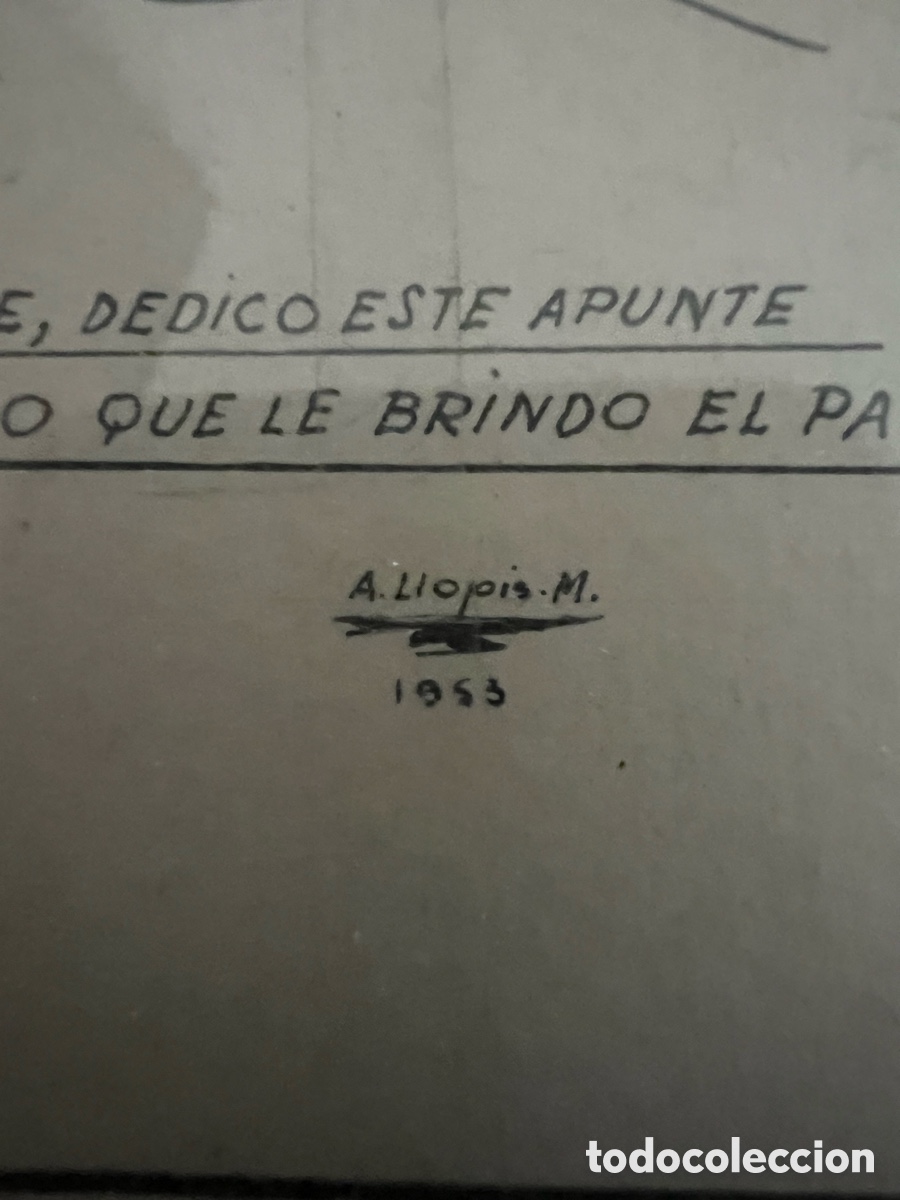 E, DEDICO ESTE APUNTE
O QUE LE BRINDO EL PA
A. Llopis. M.
1953
todocoleccion